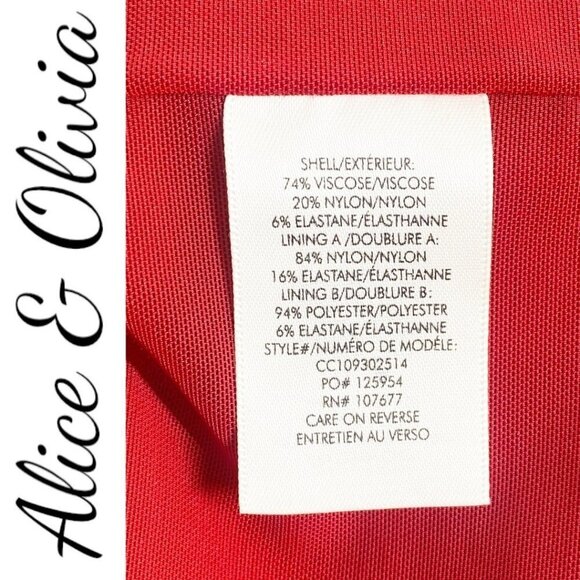 Alice & Olivia
SHELL/EXTÉRIEUR:
74% VISCOSE/VISCOSE
20% NYLON/NYLON
6% ELASTANE/ÉLASTHANNE
LINING A /DOUBLURE A:
84% NYLON/NYLON
16% ELASTANE/ÉLASTHANNE
LINING B/DOUBLURE B:
94% POLYESTER/POLYESTER
6% ELASTANE/ÉLASTHANNE
STYLE#/NUMÉRO DE MODÉLE:
CC109302514
PO# 125954
RN# 107677
CARE ON REVERSE
ENTRETIEN AU VERSO